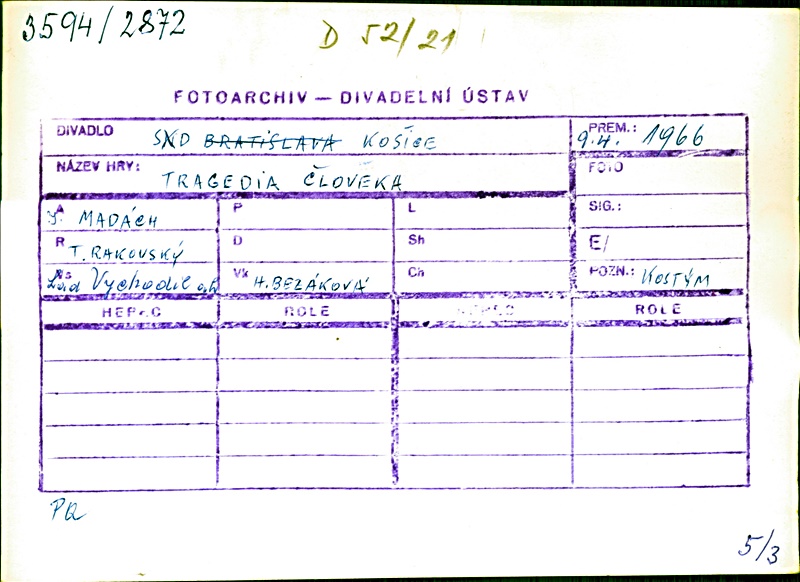 3594/2872
D 52/21
FOTOARCHIV — DIVADELNÍ ÚSTAV
DIVADLO SND BRATISLAVA KOŠICE
PREM.: 9.4. 1966
NÁZEV HRY: TRAGEDIA ČLOVĚKA
FOTO
A MADÁCH P L SIG.:
R T. RAKOVSKÝ D Sh E/
Ns Lad Vychodil Vk H. BEZÁKOVÁ Ch POZN.: KOSTÝM
HEREC ROLE HEREC ROLE
PQ
5/3